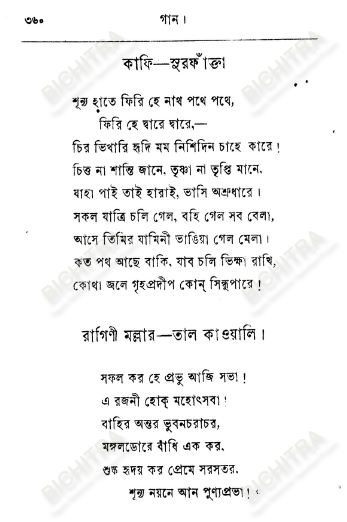 ৩৬০ গান।
কাফি—সুরফাঁক্তা
শূন্য হাতে ফিরি হে নাথ পথে পথে,
ফিরি হে দ্বারে দ্বারে,—
চির ভিখারি হৃদি মম নিশিদিন চাহে কারে!
চিত্ত না শান্তি জানে, তৃষ্ণা না তৃপ্তি মানে,
যাহা পাই তাই হারাই, ভাসি অশ্রুধারে।
সকল যাত্রি চলি গেল, বহি গেল সব বেলা,
আসে তিমির যামিনী ভাঙিয়া গেল মেলা।
কত পথ আছে বাকি, যাব চলি ভিক্ষা রাখি,
কোথা জলে গৃহপ্রদীপ কোন্ সিন্ধুপারে!
রাগিণী মল্লার—তাল কাওয়ালি।
সফল কর হে প্রভু আজি সভা!
এ রজনী হোক্ মহোৎসবা!
বাহির অন্তর ভুবনচরাচর,
মঙ্গলডোরে বাঁধি এক কর,
শুষ্ক হৃদয় কর প্রেমে সরসতর,
শূন্য নয়নে আন পুণ্যপ্রভা!
BICHITRA